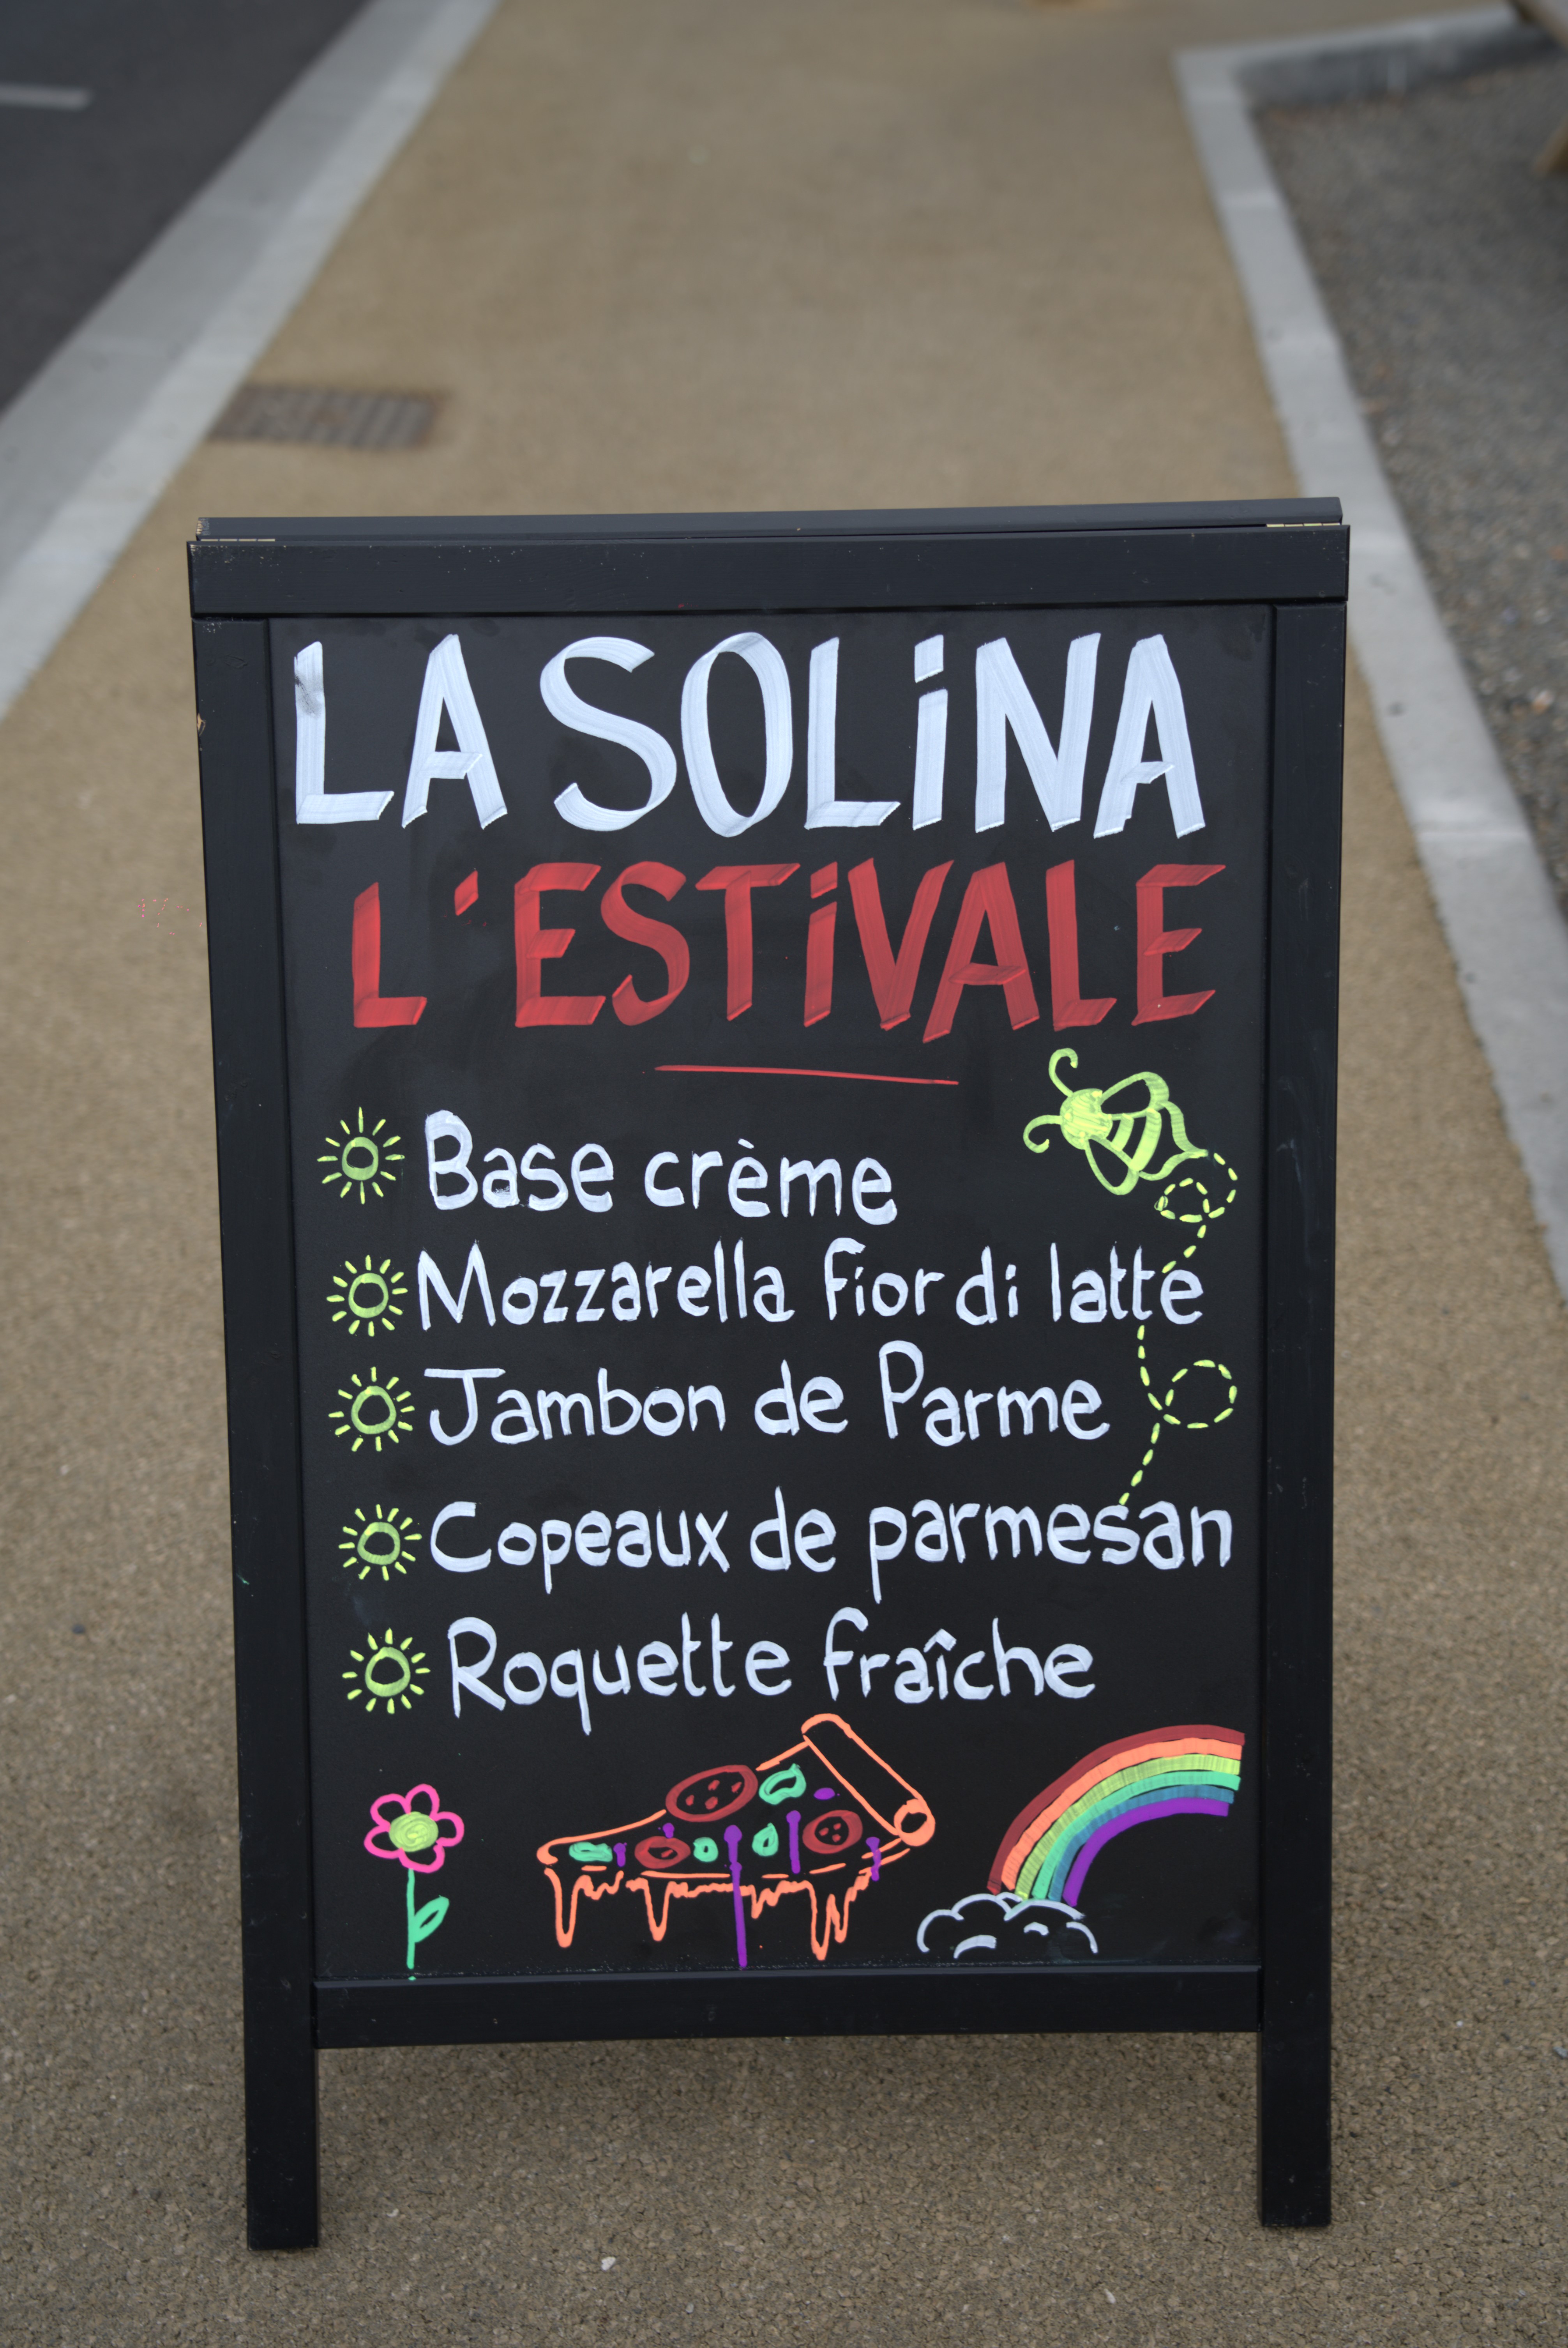 LA SOLiNA
L'ESTiVALE
Base crème
Mozzarella fior di latte
Jambon de Parme
Copeaux de parmesan
Roquette fraîche